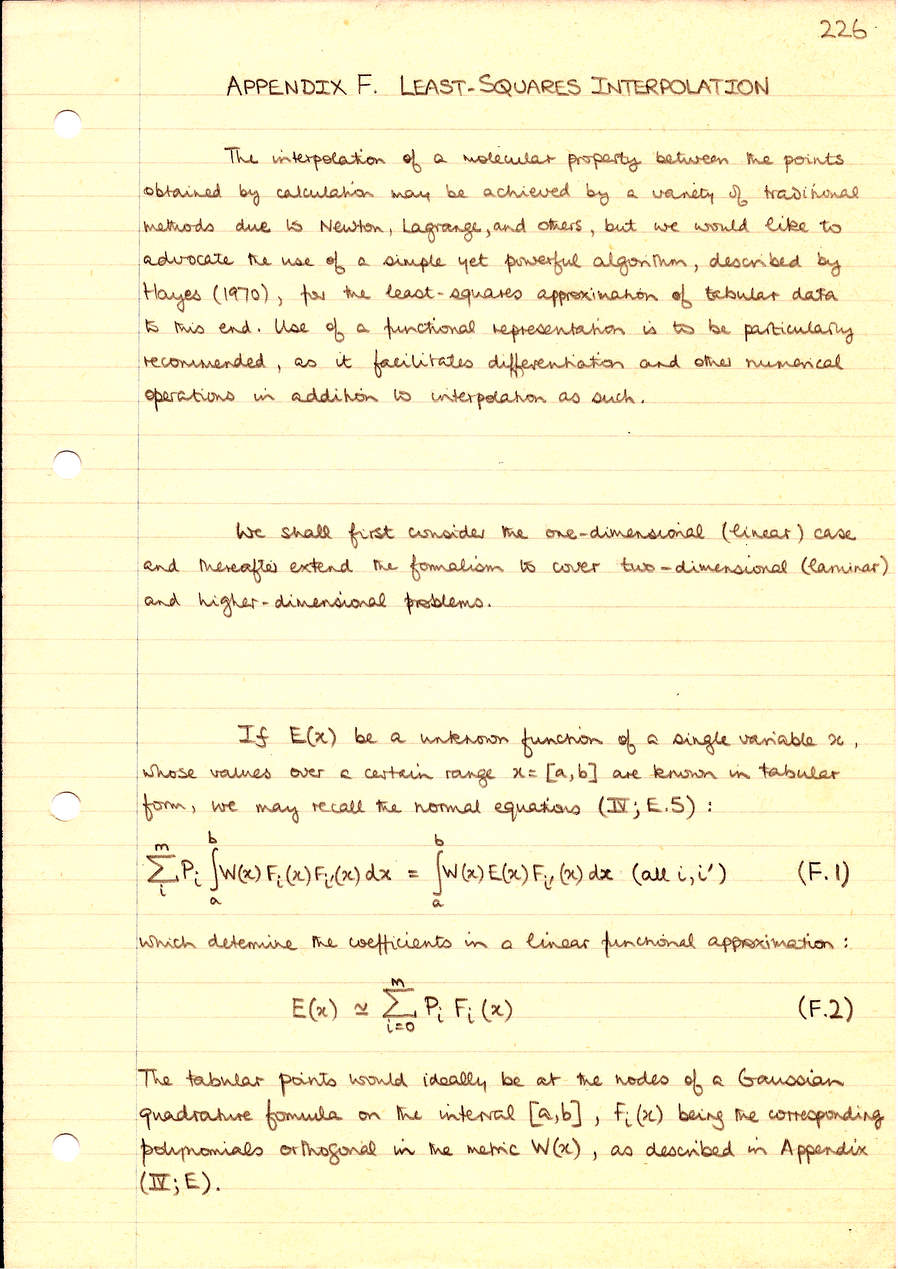 226
APPENDIX F. LEAST-SQUARES INTERPOLATION
The interpolation of a molecular property between the points
obtained by calculation may be achieved by a variety of traditional
methods due to Newton, Lagrange, and others, but we would like to
advocate the use of a simple yet powerful algorithm, described by
Hayes (1970), for the least-squares approximation of tabular data
to this end. Use of a functional representation is to be particularly
recommended, as it facilitates differentiation and other numerical
operations in addition to interpolation as such.
We shall first consider the one-dimensional (linear) case
and thereafter extend the formalism to cover two-dimensional (laminar)
and higher-dimensional problems.
If E(x) be a unknown function of a single variable x,
whose values over a certain range x=[a,b] are known in tabular
form, we may recall the normal equations (IV; E.5):
∑_i^m P_i ∫_a^b W(x) F_i(x) F_i'(x) dx = ∫_a^b W(x) E(x) F_i'(x) dx (all i,i') (F.1)
which determine the coefficients in a linear functional approximation:
E(x) ≃ ∑_{i=0}^m P_i F_i(x) (F.2)
The tabular points would ideally be at the nodes of a Gaussian
quadrature formula on the interval [a,b], F_i(x) being the corresponding
polynomials orthogonal in the metric W(x), as described in Appendix
(IV; E).